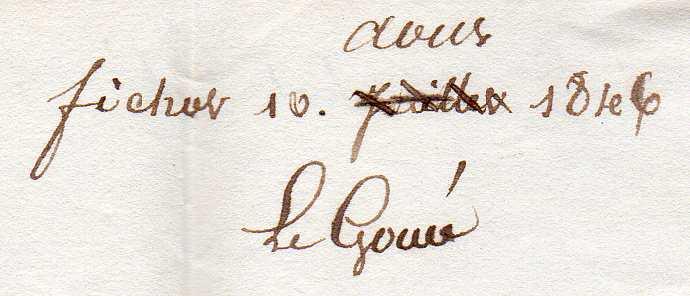 aout
fichos 10. juillet 1846
Le Goué